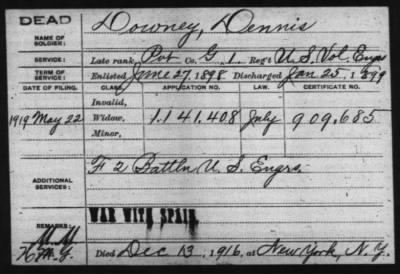 DEAD
Downey, Dennis
NAME OF SOLDIER:
SERVICE: Late rank, Pvt Co. G, 1 Reg't U.S. Vol. Engrs
TERM OF SERVICE: Enlisted June 27, 1898 Discharged Jan 25, 1899
DATE OF FILING. CLASS. APPLICATION NO. LAW. CERTIFICATE NO.
Invalid,
1919 May 22 Widow, 1.141.408 July 909.685
Minor,
ADDITIONAL SERVICES: F 2 Battln U.S. Engrs.
WAR WITH SPAIN.
REMARKS:
Died Dec 13, 1916, at New York, N.Y.